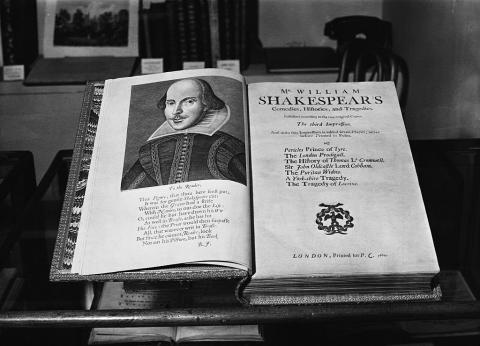 To the Reader.
This Figure, that thou here seest put,
It was for gentle Shakespeare cut;
Wherein the Graver had a strife
With Nature, to out-doe the Life:
O, could he but have drawn his Wit
As well in Brass, as he has hit
His Face; the Print would then surpass
All, that was ever writ in Brass.
But since he cannot, Reader, look
Not on his Picture, but his Book.
B. J.
Mr. WILLIAM
SHAKESPEAR'S
Comedies, Histories, and Tragedies.
Published according to the true Original Copies.
The third Impression.
And unto this Impression is added seven Playes, never
before Printed in Folio.
viz.
Pericles Prince of Tyre.
The London Prodigall.
The History of Thomas Ld. Cromwell.
Sir John Oldcastle Lord Cobham.
The Puritan Widow.
A York-shire Tragedy.
The Tragedy of Locrine.
LONDON, Printed for P. C. 1664.